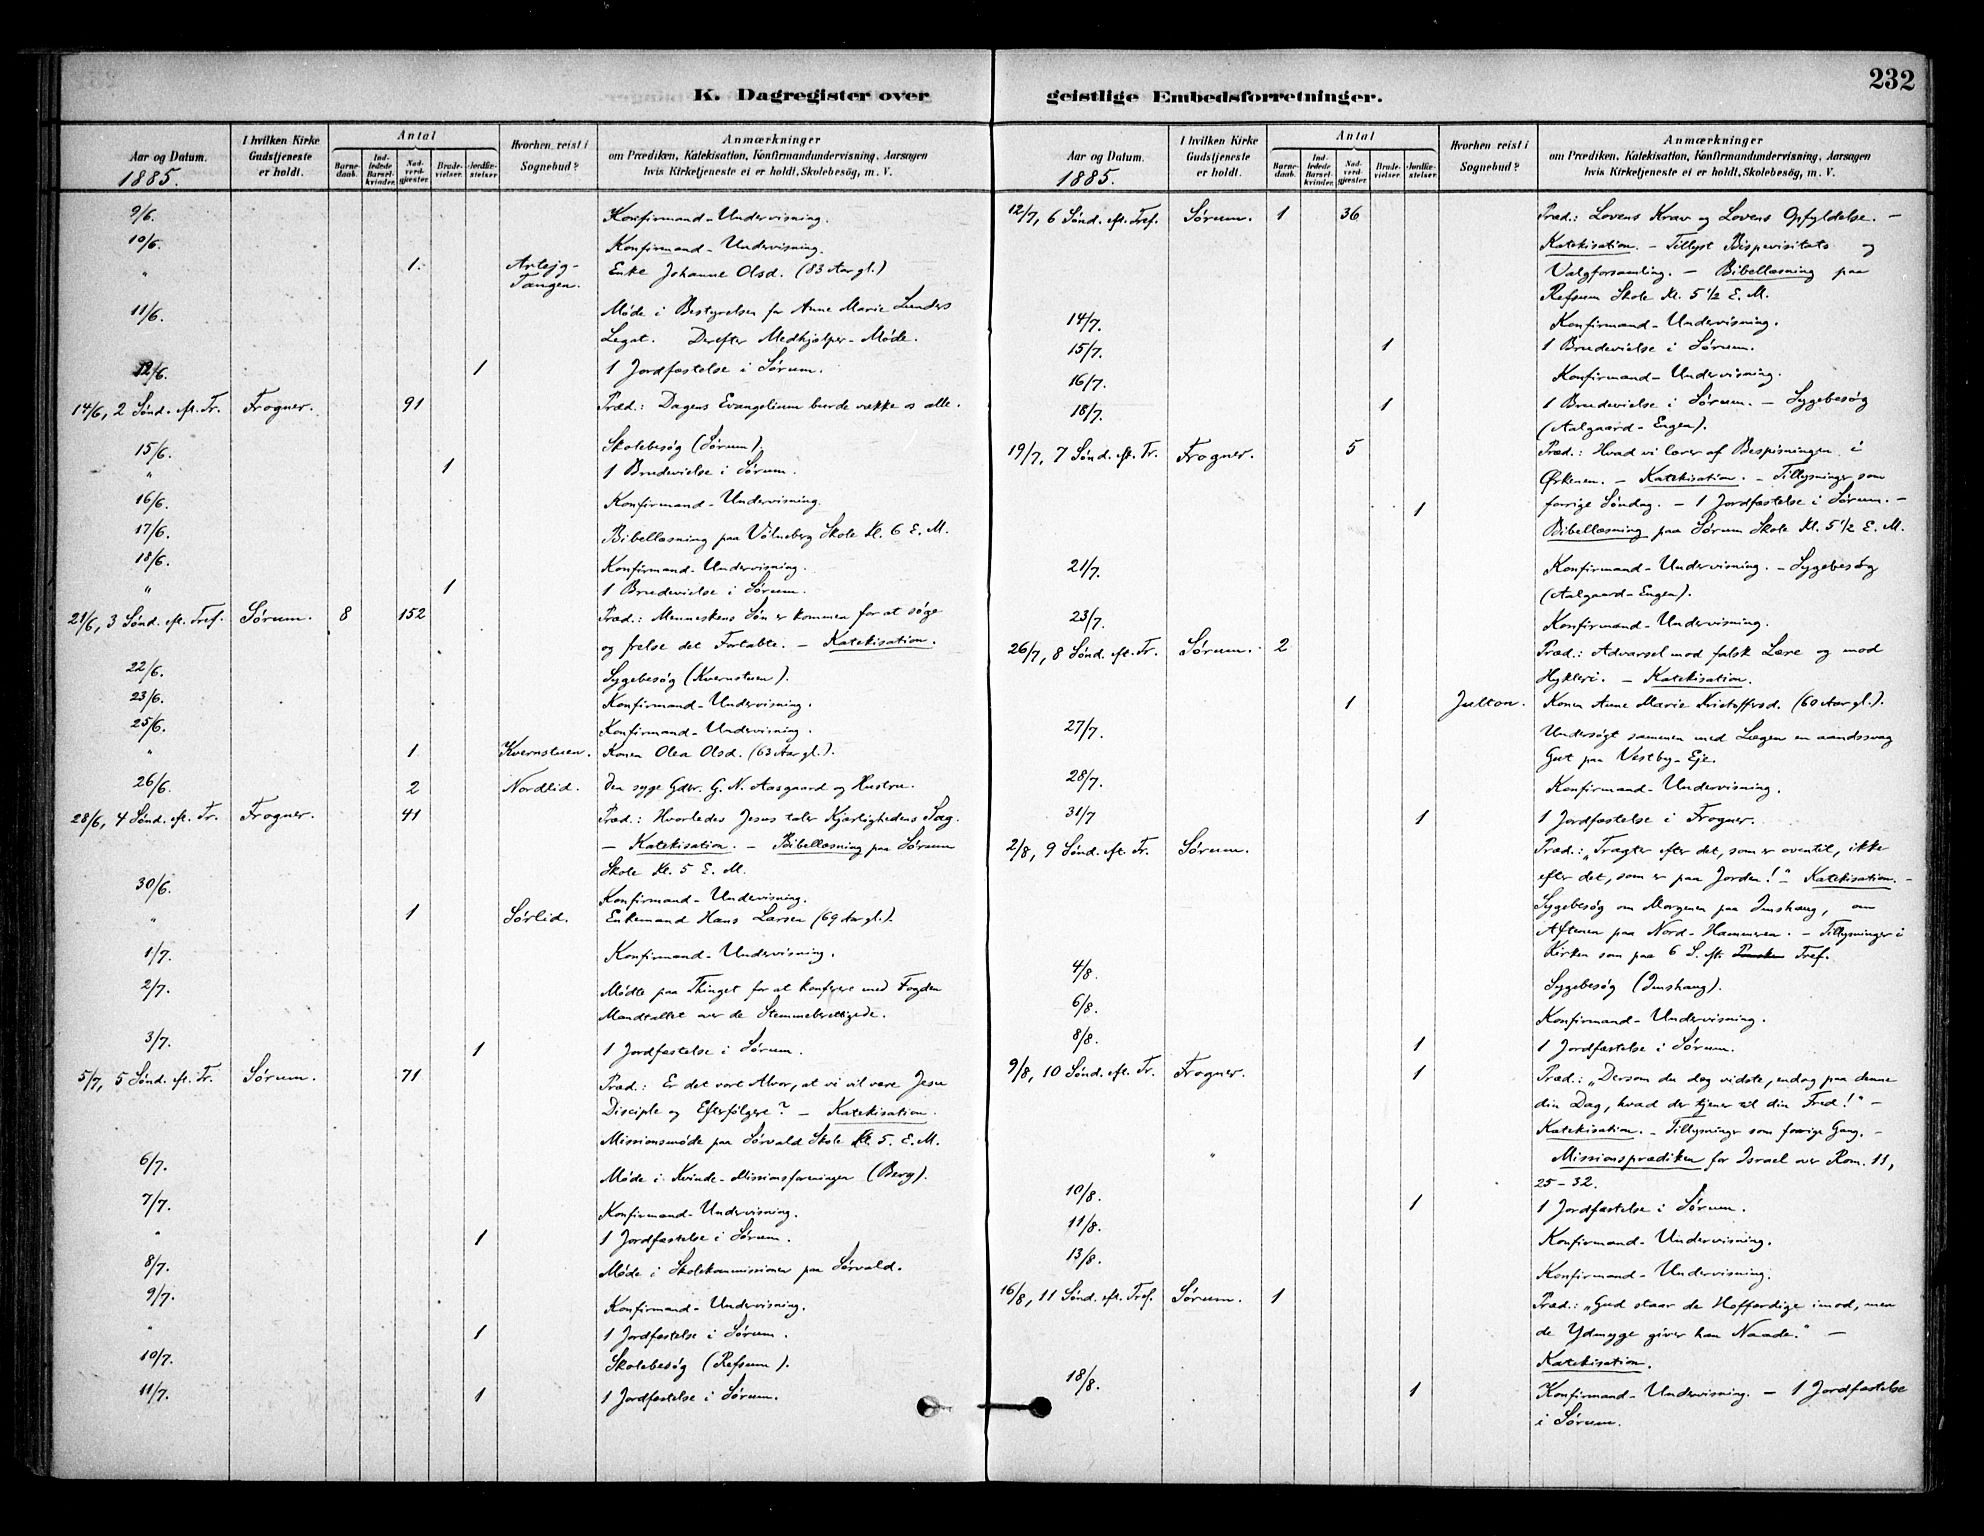 232
K. Dagregister over geistlige Embedsforretninger.
Aar og Datum.
1885.
I hvilken Kirke Gudstjeneste er holdt.
Antal
Barnedaab.
Indledede Barselkvinder.
Nadverdgjester.
Brudevielser.
Jordfæstelser
Hvorhen reist i Sognebud?
Anmærkninger
om Prædiken, Katekisation, Konfirmandundervisning, Aarsagen
hvis Kirketjeneste ei er holdt, Skolebesøg, m. V.
9/6. Konfirmand-Undervisning.
10/6. Konfirmand-Undervisning.
" 1. Enke Johanne Olsd. (83 Aar gl.)
Tangen.
11/6. Møde i Bestyrelsen for Anne Marie Lunders
Legat. Derefter Medhjælper-Møde.
12/6. 1 1 Jordfæstelse i Sørum.
14/6, 2 Sønd. eft. Tr. Frogner. 91 Præd.: Dagens Evangelium burde vække os alle.
15/6. Skolebesøg (Sørum).
" 1 1 Brudevielse i Sørum.
16/6. Konfirmand-Undervisning.
17/6. Bibellæsning paa Vølneberg Skole Kl. 6 E. M.
18/6. Konfirmand-Undervisning.
" 1 1 Brudevielse i Sørum.
21/6, 3 Sønd. eft. Tref. Sørum. 8 152 Præd.: Menneskens Søn er kommen for at søge
og frelse det Fortabte. – Katekisation.
22/6. Sygebesøg (Kvernstuen).
23/6. Konfirmand-Undervisning.
25/6. Konfirmand-Undervisning.
" 1 Kvernstuen. Konen Olea Olsd. (63 Aar gl.).
26/6. 2 Nordlid. Den syge Gdbr. G. N. Aasgaard og Hustru.
28/6, 4 Sønd. eft. Tr. Frogner. 41 Præd.: Hvorledes Jesus taler Kjærlighedens Sag.
– Katekisation. – Bibellæsning paa Sørum
Skole Kl. 5 E. M.
30/6. Konfirmand-Undervisning.
" 1 Sørlid. Enkemand Hans Larsen (69 Aar gl.).
1/7. Konfirmand-Undervisning.
2/7. Mødte paa Thinget for at konferere med Fogden
Mandtallet over de Stemmeberettigede.
3/7. 1 1 Jordfæstelse i Sørum.
5/7, 5 Sønd. eft. Tr. Sørum. 71 Præd.: Er det vort Alvor, at vi vil være Jesu
Disciple og Efterfølgere? – Katekisation.
Missionsmøde paa Sørvald Skole Kl. 5. E. M.
6/7. Møde i Kvinde-Missionsforeningen (Berg).
7/7. Konfirmand-Undervisning.
" 1 1 Jordfæstelse i Sørum.
8/7. Møde i Skolekommissionen paa Sørvald.
9/7. Konfirmand-Undervisning.
" 1 1 Jordfæstelse i Sørum.
10/7. Skolebesøg (Refsum).
11/7. 1 1 Jordfæstelse i Sørum.
Aar og Datum.
1885.
I hvilken Kirke Gudstjeneste er holdt.
Antal
Barnedaab.
Indledede Barselkvinder.
Nadverdgjester.
Brudevielser.
Jordfæstelser
Hvorhen reist i Sognebud?
Anmærkninger
om Prædiken, Katekisation, Konfirmandundervisning, Aarsagen
hvis Kirketjeneste ei er holdt, Skolebesøg, m. V.
12/7, 6 Sønd. eft. Tref. Sørum. 1 36 Præd.: Lovens Krav og Lovens Opfyldelse. –
Katekisation. – Tillyst Bispevisitats og
Valgforsamling. – Bibellæsning paa
Refsum Skole Kl. 5 1/2 E. M.
14/7. Konfirmand-Undervisning.
15/7. 1 1 Brudevielse i Sørum.
16/7. Konfirmand-Undervisning.
18/7. 1 1 Brudevielse i Sørum. – Sygebesøg
(Aalgaard-Engen).
19/7, 7 Sønd. eft. Tr. Frogner. 5 Præd.: Hvad vi lærer af Bespisningen i
Ørkenen. – Katekisation. – Tillysninger som
forrige Søndag. – 1 Jordfæstelse i Sørum. –
1
Bibellæsning paa Sørum Skole Kl. 5 1/2 E. M.
21/7. Konfirmand-Undervisning. – Sygebesøg
(Aalgaard-Engen).
23/7. Konfirmand-Undervisning.
26/7, 8 Sønd. eft. Tr. Sørum. 2 Præd.: Advarsel mod falsk Lære og mod
Hykleri. – Katekisation.
1 Julton. Konen Anne Marie Kristoffersd. (60 Aar gl.).
27/7. Undersøgt sammen med Lægen en aandssvag
Gut paa Vestby-Eje.
28/7. Konfirmand-Undervisning.
31/7 1 1 Jordfæstelse i Frogner.
2/8, 9 Sønd. eft. Tr. Sørum. Præd.: „Tragter efter det, som er oventil, ikke
efter det, som er paa Jorden!" – Katekisation. –
Sygebesøg om Morgenen paa Imshaug, om
Aftenen paa Nord-Hammeren. – Tillysninger i
Kirken som paa 6 S. eft. Tref.
4/8. Sygebesøg (Imshaug).
6/8. Konfirmand-Undervisning.
8/8. 1 1 Jordfæstelse i Sørum.
9/8, 10 Sønd. eft. Tr. Frogner. 1 Præd.: „Dersom du dog vidste, endog paa denne
din Dag, hvad der tjener til din Fred!" –
Katekisation. – Tillysninger som forrige Gang. –
" Missionsprædiken for Israel over Rom. 11,
25-32.
10/8. 1 1 Jordfæstelse i Sørum.
11/8. Konfirmand-Undervisning.
13/8. Konfirmand-Undervisning.
16/8, 11 Sønd. eft. Tref. Sørum. 1 Præd.: „Gud staar de Hoffærdige imod, men
de Ydmyge giver han Naade." –
Katekisation.
18/8. 1 Konfirmand-Undervisning. – 1 Jordfæstelse
i Sørum.